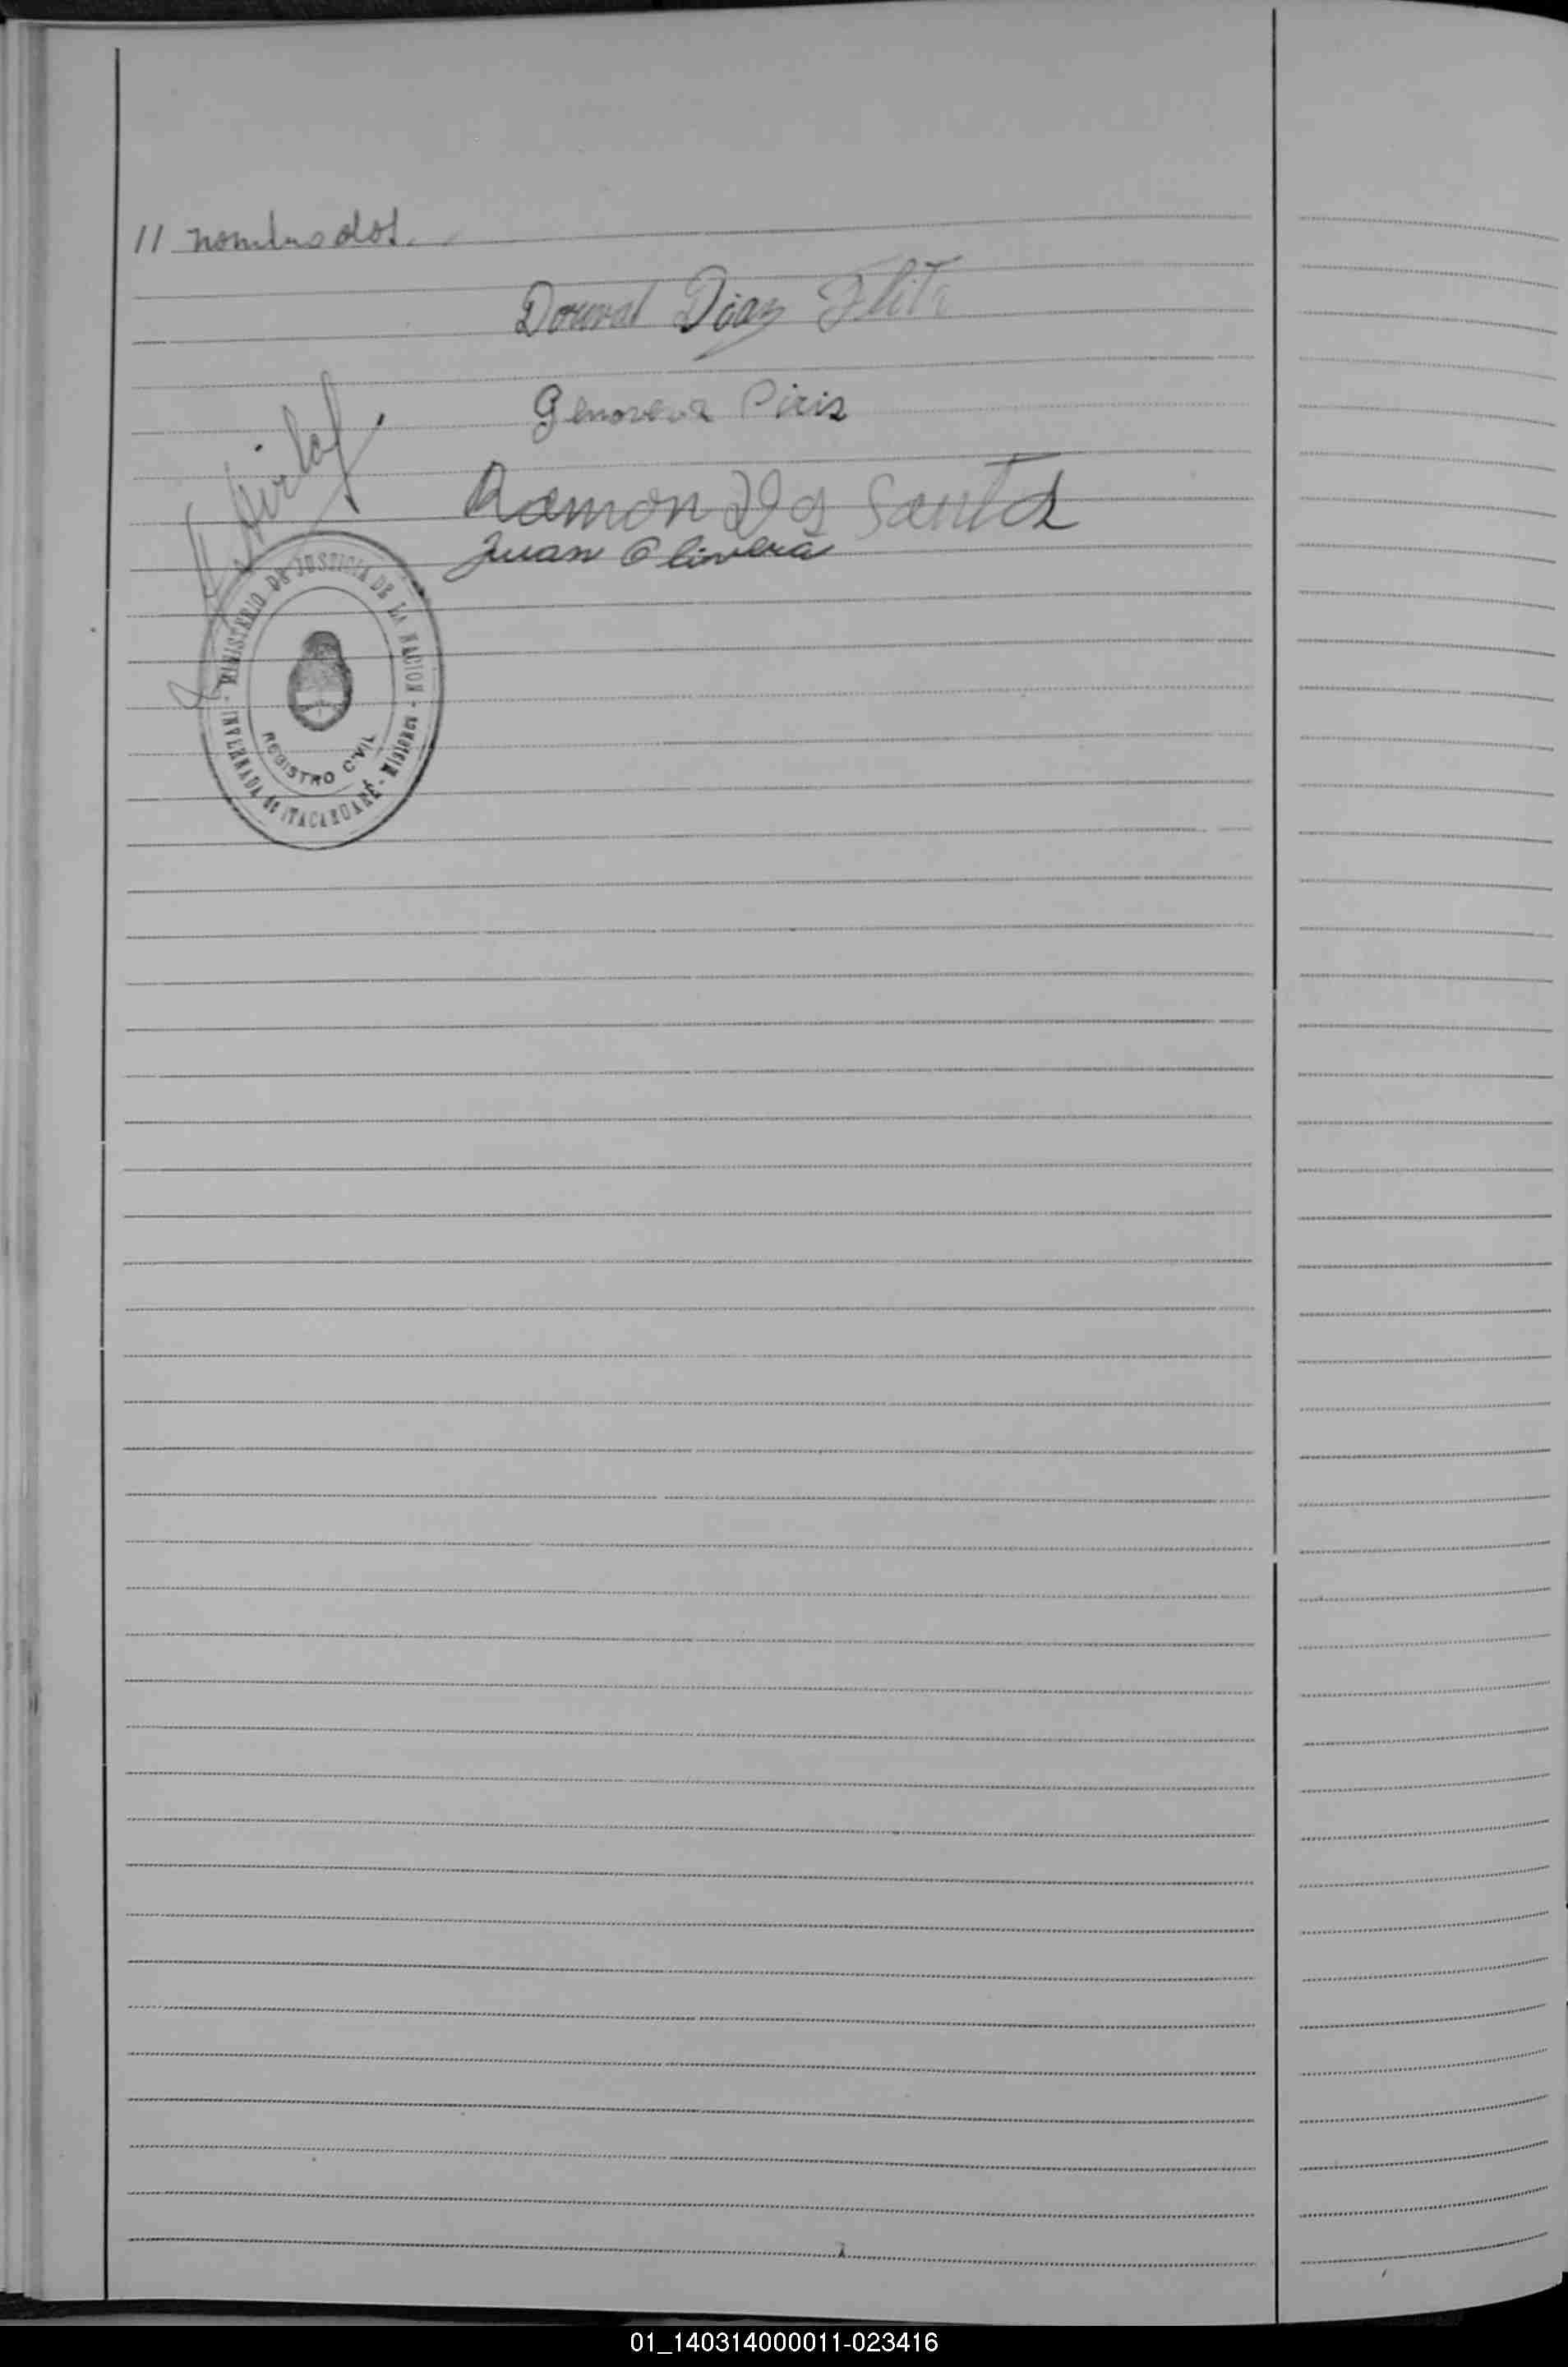 11 nombrados.
Dorval Diaz
Genoveva Piris
Ramon Dos Santos
Juan Olivera
MINISTERIO DE JUSTICIA DE LA NACION - INVERNADA DE ITACARUARÉ - Misiones -
REGISTRO CIVIL
01_140314000011-023416